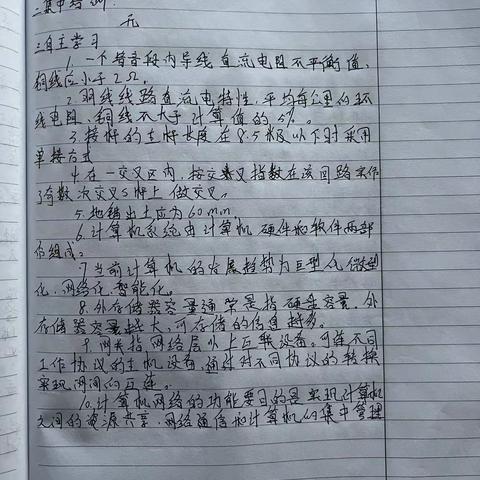 二集中培训:
无
三自主学习
1. 一个增音段内导线直流电阻不平衡值,
铜线应小于2Ω。
2. 明线线路直流电特性,平均每公里的环
线电阻,铜线不大于计算值的5%。
3. 接杆的主杆长度在8.5米及以下时采用
单接方式
4. 在一交叉区内,按交叉指数在该回路实作
了奇数次交叉S杆上做交叉。
5. 地锚出土应为60mm,
6. 计算机系统由计算机硬件和软件两部
份组成。
7. 当前计算机的发展趋势为巨型化,微型
化,网络化,智能化。
8. 外存储器容量通常是指硬盘容量,外
存储器容量越大,可存储的信息越多。
9. 网关指网络层以上互联设备。可连不同
工作协议的主机设备,通过对不同协议的转换
实现网间的互连。
10. 计算机网络的功能要目的是实现计算机
之间的资源共享,网络通信和计算机的集中管理